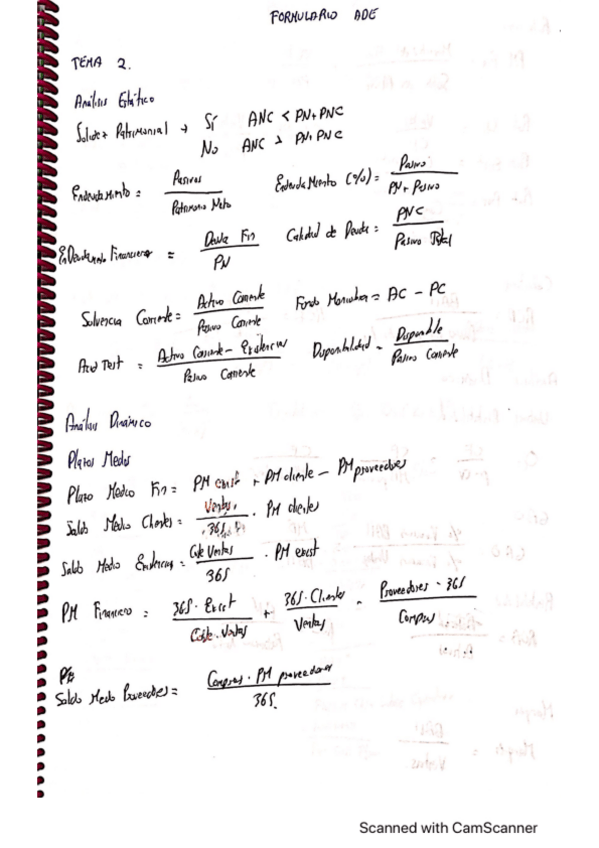 FORMULARIO ADE
TEMA 2.
Análisis Estático
Solidez Patrimonial → Sí ANC < PN+PNC
No ANC > PN+PNC
Endeudamiento = Pasivos / Patrimonio Neto
Endeudamiento (%) = Pasivo / PN + Pasivo
Endeudamiento Financiero = Deuda Fin / PN
Calidad de Deuda = PNC / Pasivo Total
Solvencia Corriente = Activo Corriente / Pasivo Corriente
Fondo Maniobra = AC - PC
Acid Test = Activo Corriente - Existencias / Pasivo Corriente
Disponibilidad = Disponible / Pasivo Corriente
Análisis Dinámico
Plazos Medios
Plazo Medio Fin = PM exist + PM cliente - PM proveedores
Saldo Medio Clientes = Ventas / 365 · PM clientes
Saldo Medio Existencias = Coste Ventas / 365 · PM exist
PM Financiero = 365 · Exist / Coste Ventas + 365 · Clientes / Ventas - Proveedores · 365 / Compras
Saldo Medio Proveedores = Compras · PM proveedores / 365.
Scanned with CamScanner